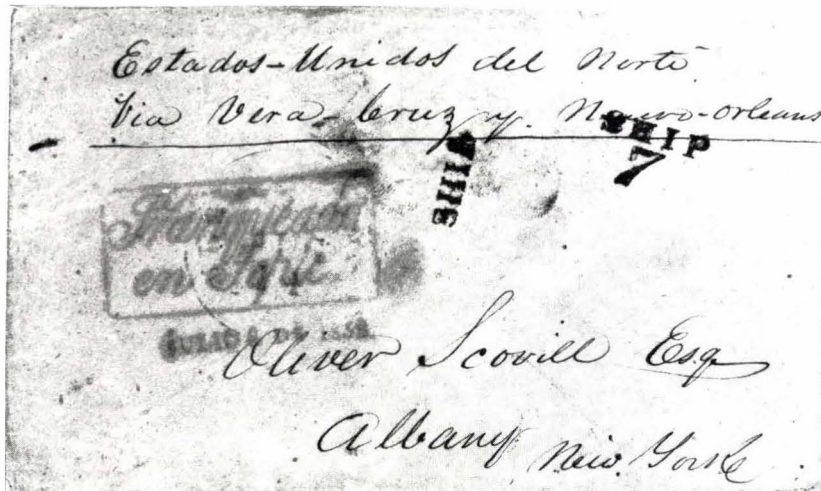 Estados-Unidos del Norte
Via Vera-Cruz y. Nuevo-Orleans
SHIP
SHIP
7
en Tepic
Oliver Scovill Esq
Albany New York